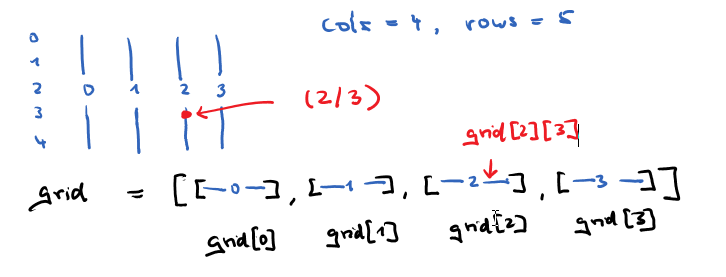 cols = 4, rows = 5
0
1
2 0 1 2 3
3
4
(2/3)
grid[2][3]
grid = [[—0—], [—1—], [—2—], [—3—]]
grid[0] grid[1] grid[2] grid[3]